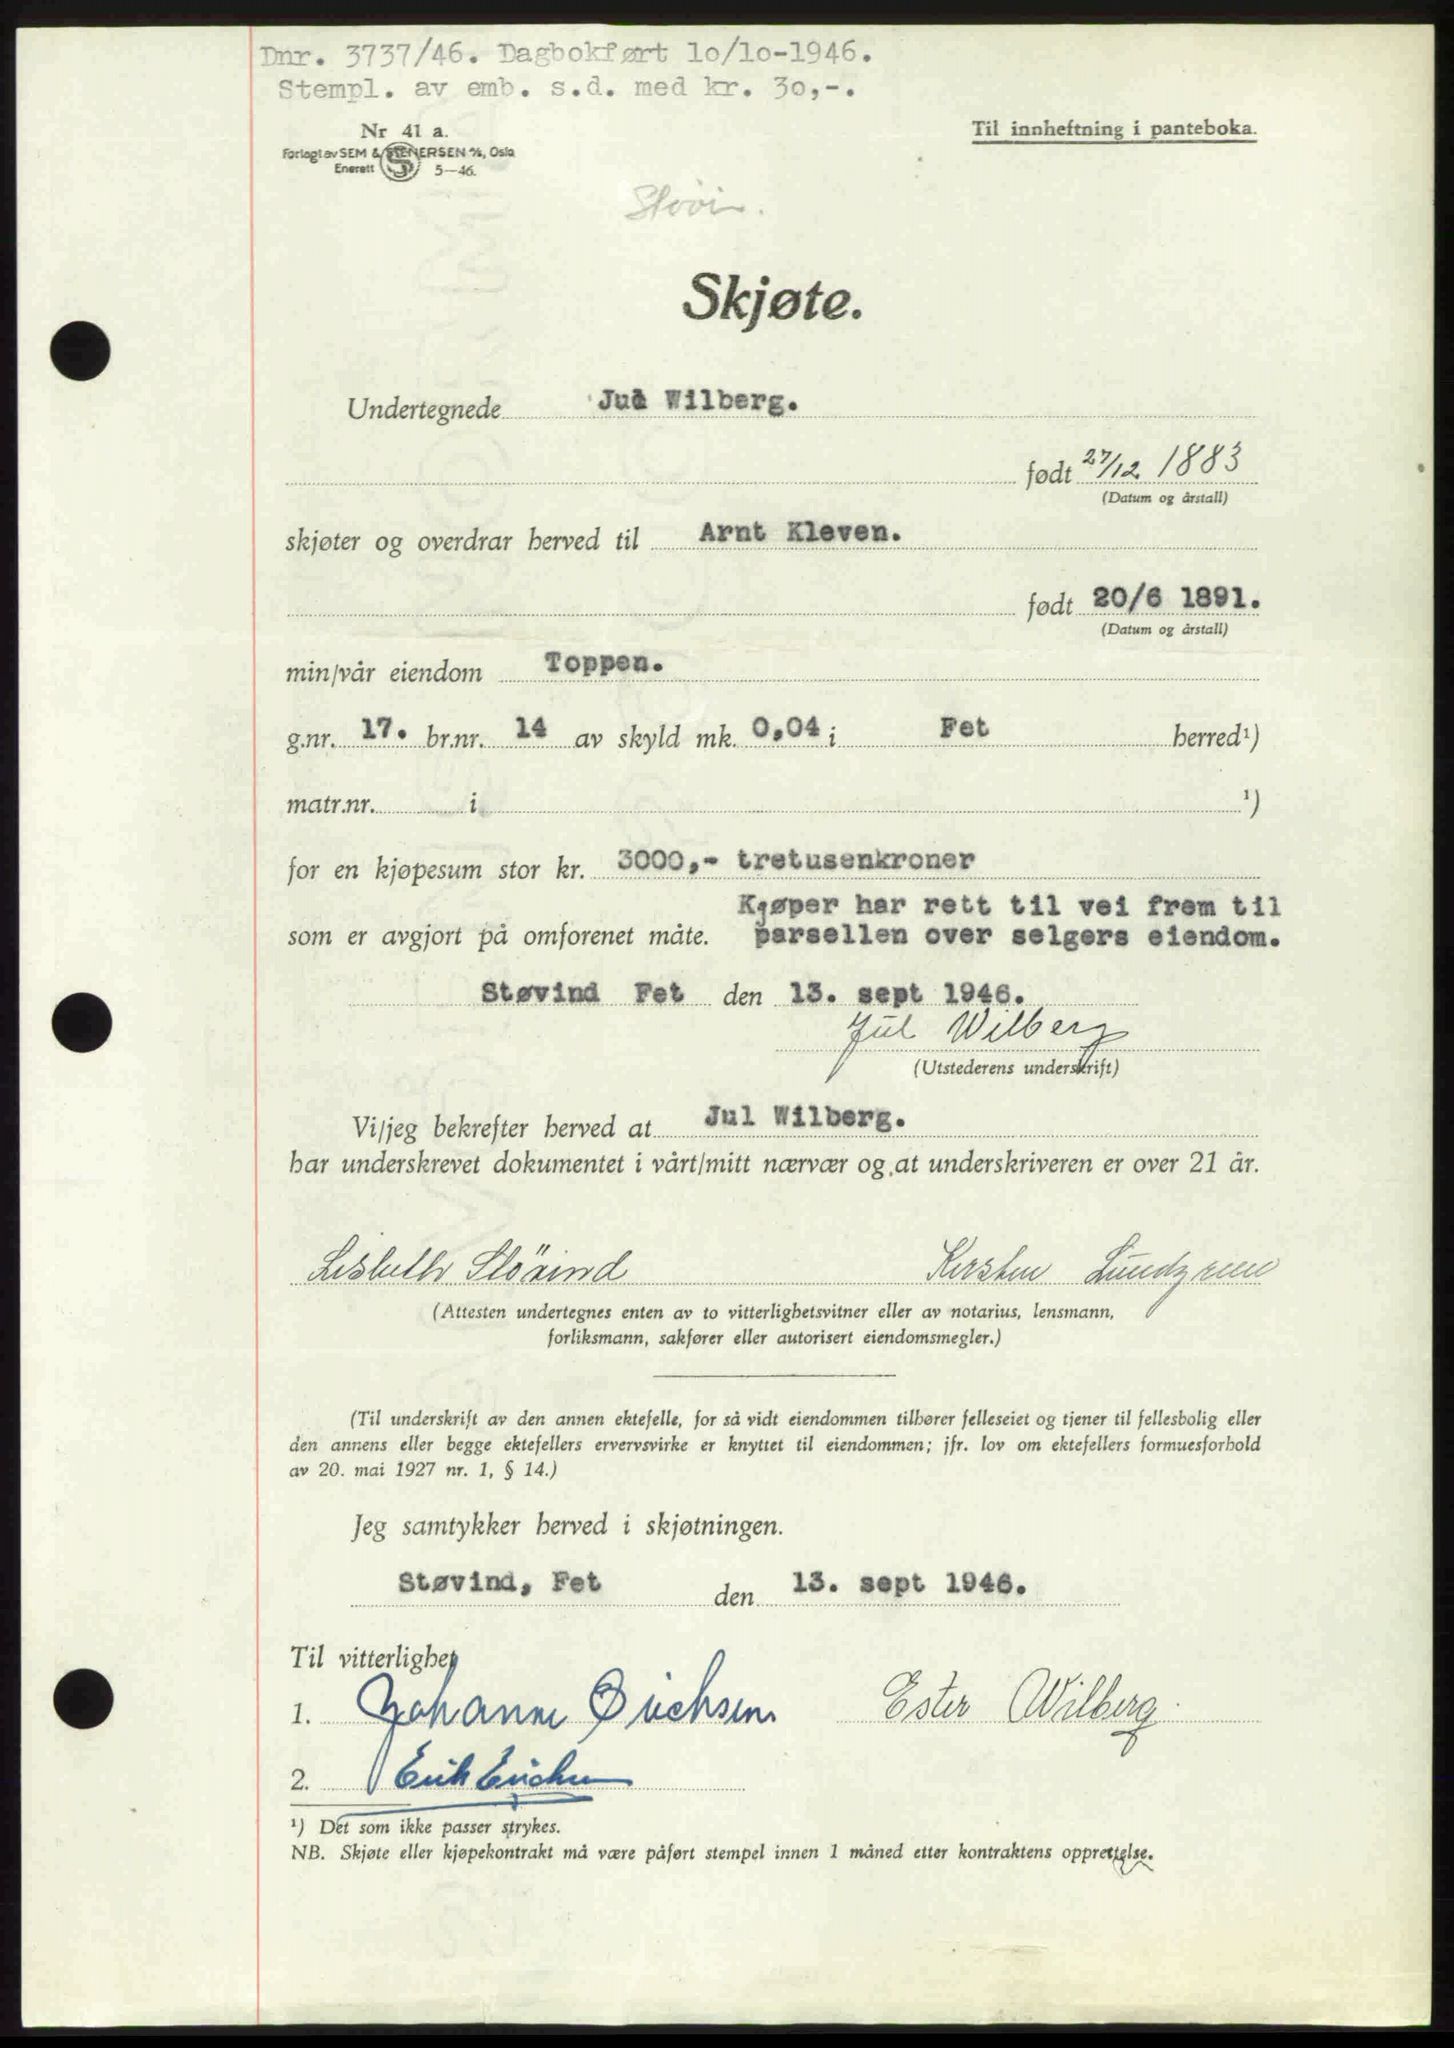 Dnr. 3737/46. Dagbokført 10/10-1946.
Stempl. av emb. s.d. med kr. 30,-.
Nr 41 a.
Forlagt av SEM & STENERSEN A/S, Oslo
Enerett 5—46.
Til innheftning i panteboka.
Skjøte.
Undertegnede Jul Wilberg.
født 27/12 1883
(Datum og årstall)
skjøter og overdrar herved til Arnt Kleven.
født 20/6 1891.
(Datum og årstall)
min/vår eiendom Toppen.
g.nr. 17. br.nr. 14 av skyld mk. 0,04 i Fet herred¹)
matr.nr. i ¹)
for en kjøpesum stor kr. 3000,- tretusenkroner
Kjøper har rett til vei frem til
som er avgjort på omforenet måte. parsellen over selgers eiendom.
Støvind Fet den 13. sept 1946.
Jul Wilberg
(Utstederens underskrift)
Vi/jeg bekrefter herved at Jul Wilberg.
har underskrevet dokumentet i vårt/mitt nærvær og at underskriveren er over 21 år.
Lisbeth Stövind Kirsten Lundgreen
(Attesten undertegnes enten av to vitterlighetsvitner eller av notarius, lensmann,
forliksmann, sakfører eller autorisert eiendomsmegler.)
(Til underskrift av den annen ektefelle, for så vidt eiendommen tilhører felleseiet og tjener til fellesbolig eller
den annens eller begge ektefellers ervervsvirke er knyttet til eiendommen; jfr. lov om ektefellers formuesforhold
av 20. mai 1927 nr. 1, § 14.)
Jeg samtykker herved i skjøtningen.
Støvind, Fet den 13. sept 1946.
Til vitterlighet
1. Johanne Erichsen Ester Wilberg.
2. Erik Erichsen
¹) Det som ikke passer strykes.
NB. Skjøte eller kjøpekontrakt må være påført stempel innen 1 måned etter kontraktens opprettelse.